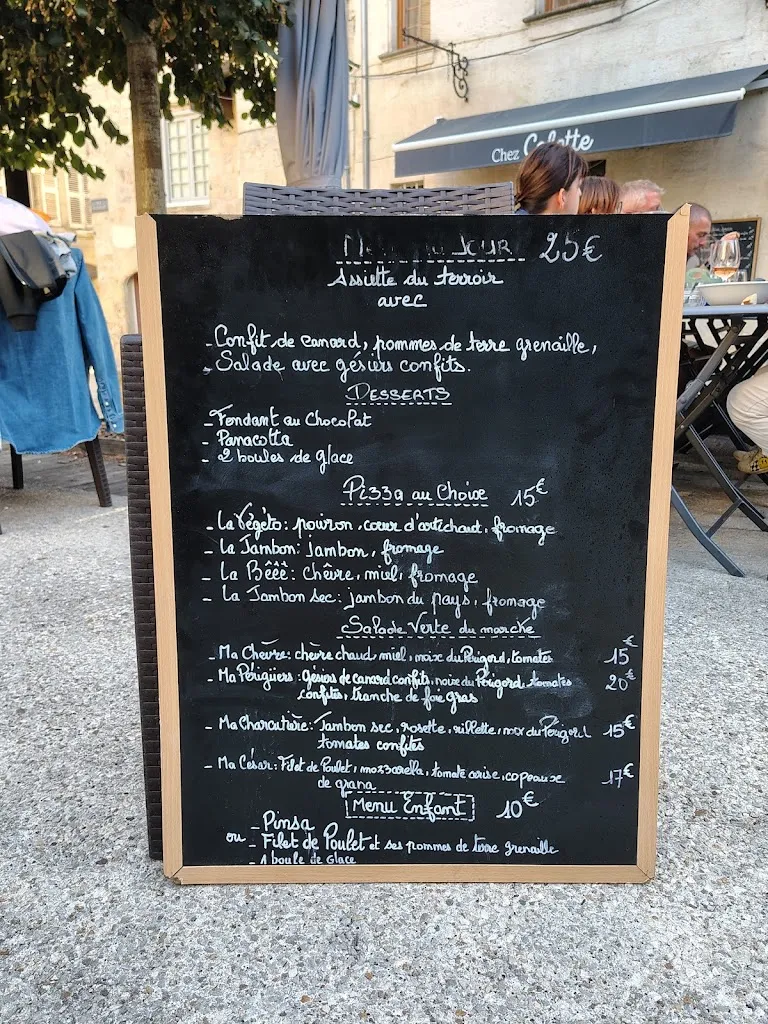 Chez Colette
JOUR 25€
Assiette du terroir
avec
- Confit de canard, pommes de terre grenaille,
- Salade avec gésiers confits.
DESSERTS
- Fondant au Chocolat
- Panacotta
- 2 boules de glace
Pizza au Choix 15€
- La Végéto: poivron, cœur d'artichaut, fromage
- La Jambon: jambon, fromage
- La Bêêê: chêvre, miel, fromage
- La Jambon sec: jambon du pays, fromage
Salade Verte du marche
- Ma Chèvre: chèvre chaud, miel, noix du Périgord, tomates 15€
- Ma Périgüers: Gésiers de canard confits, noix du Périgord, tomates 20€
confites, tranche de foie gras
- Ma Charcutière: Jambon sec, rosette, rillette, noix du Périgord 15€
tomates confites
- Ma César: Filet de Poulet, mozzarella, tomate cerise, copeaux 17€
de grana
Menu Enfant 10€
- Pinsa
ou - Filet de Poulet et ses pommes de terre grenaille
- 1 boule de Glace